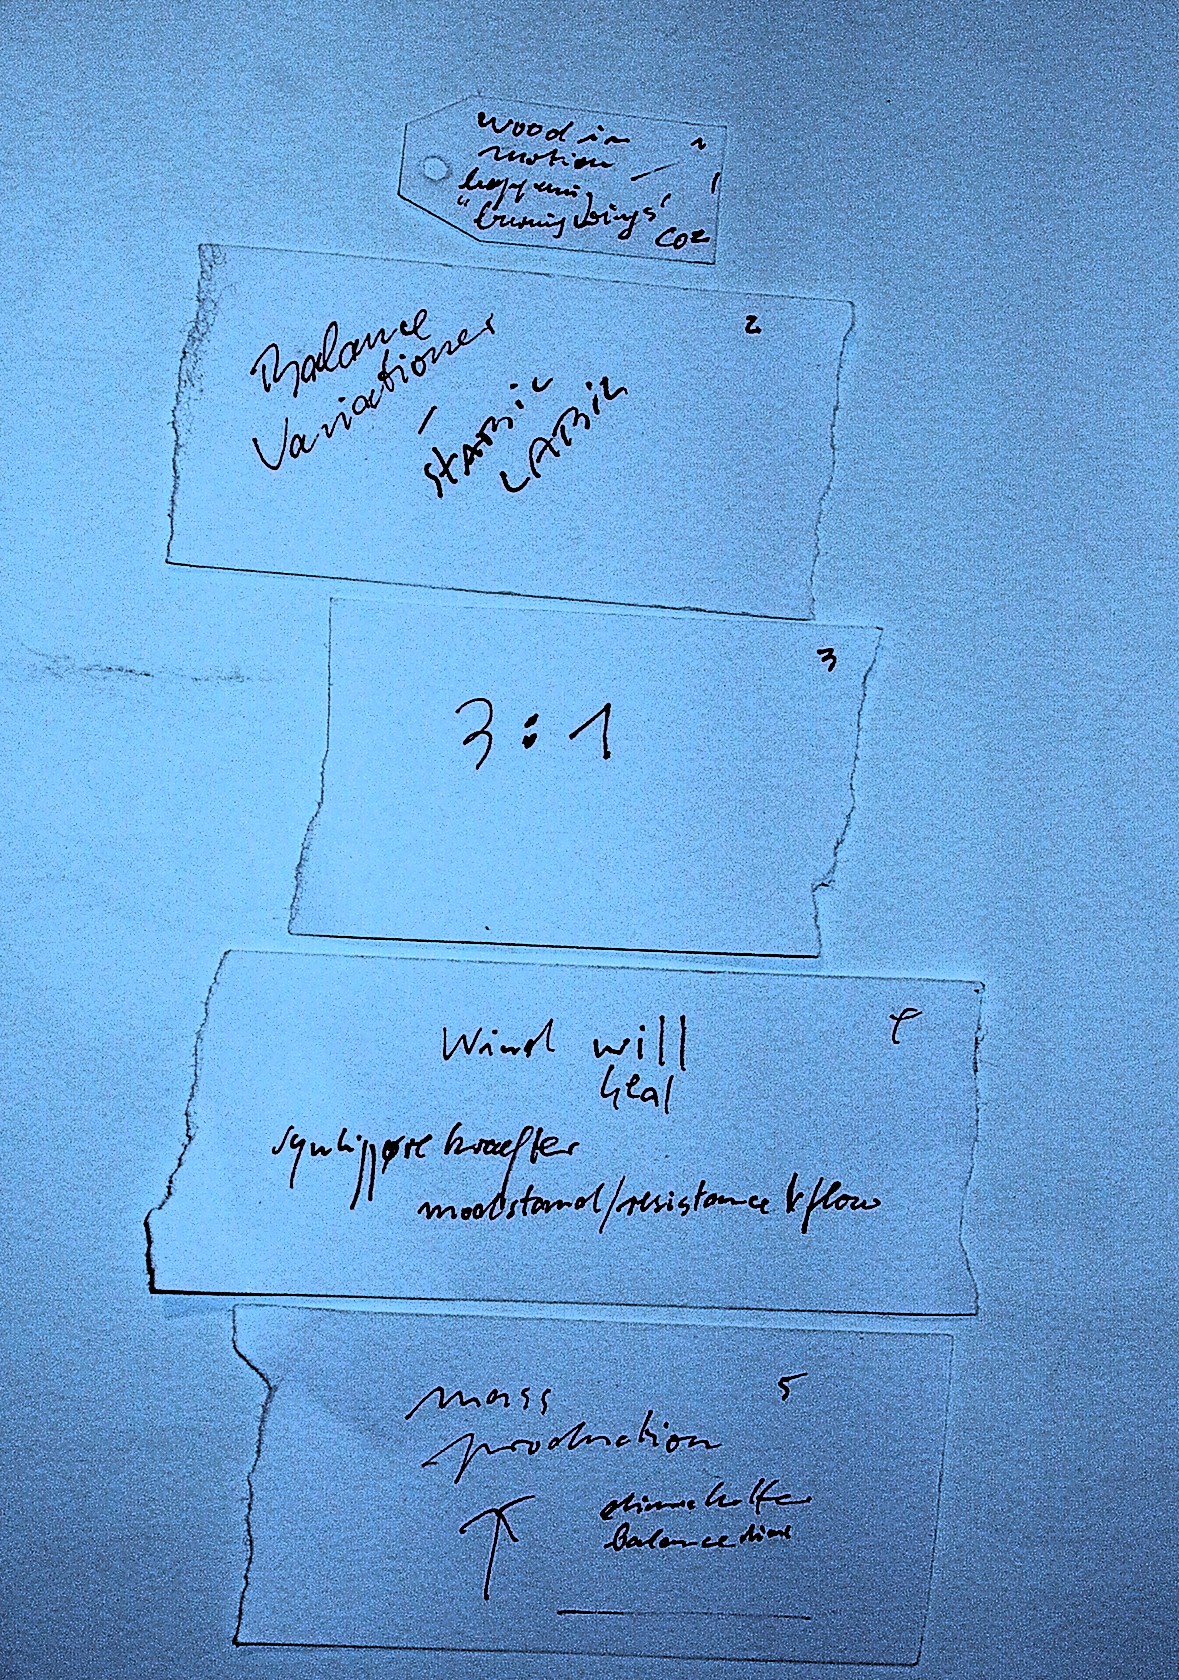 wood in 1
motion
happening
"burning wings" CO2
2
Balance
Variationer
STABIL
LABIL
3
3:1
4
Wind will
heal
kraefter
modstand/resistance & flow
5
mass
production
balance